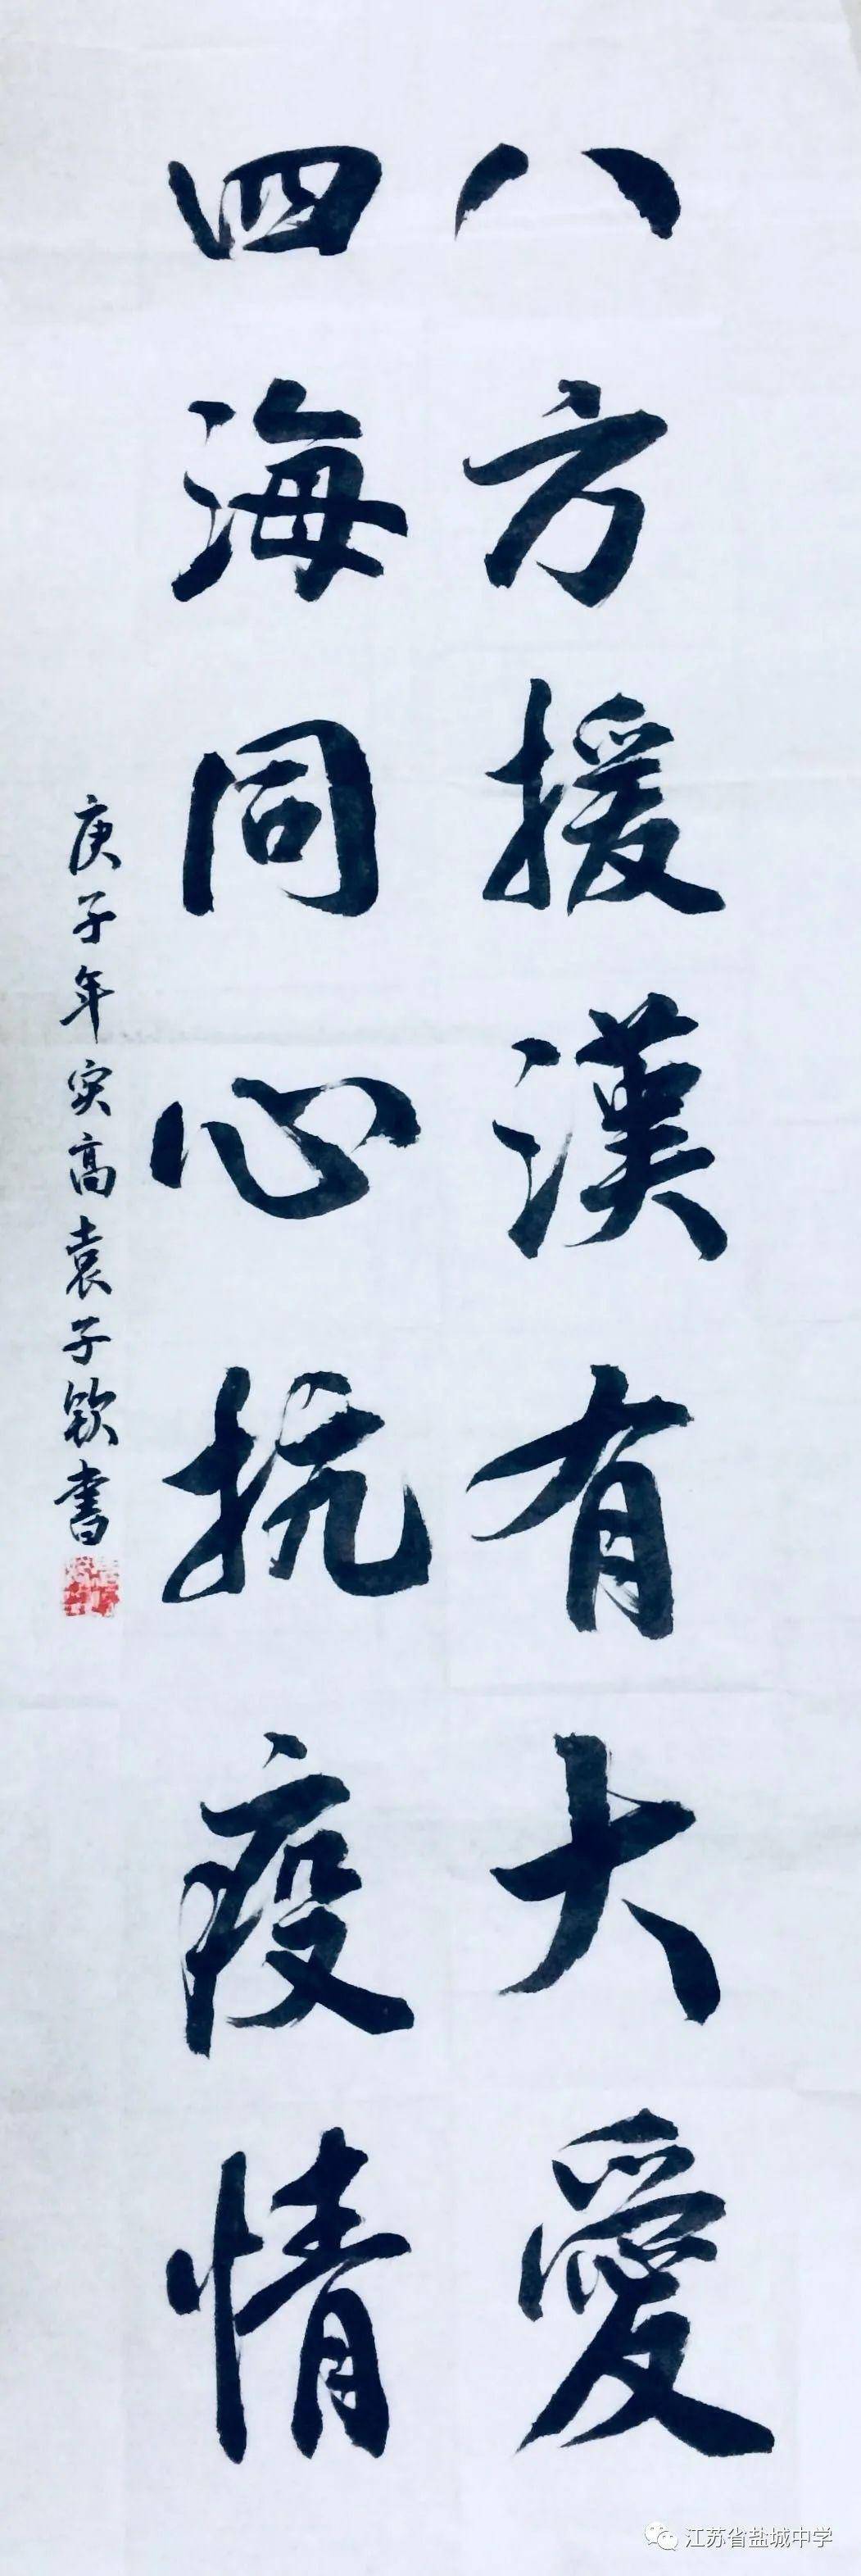 八方援漢有大愛
四海同心抗疫情
庚子年实高袁子欽書
江苏省盐城中学